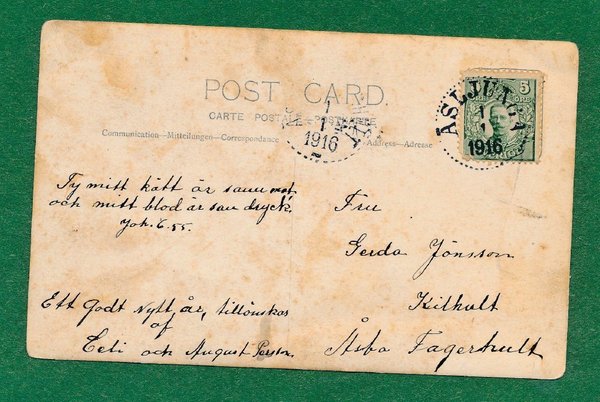 POST CARD.
CARTE POSTALE - POSTKARTE
Communication—Mitteilungen—Correspondence
Address—Adresse
1
1
1916
5
ÖRE
ÅSLJUNGA
1
1
1916
Ty mitt kött är sann mat
och mitt blod är san dryck.
Joh. 6. 55.
Ett godt nytt år, tillönskas
af
Celi och August Persson.
Fru
Gerda Jönsson
Kilhult
Åsbo Fagerhult